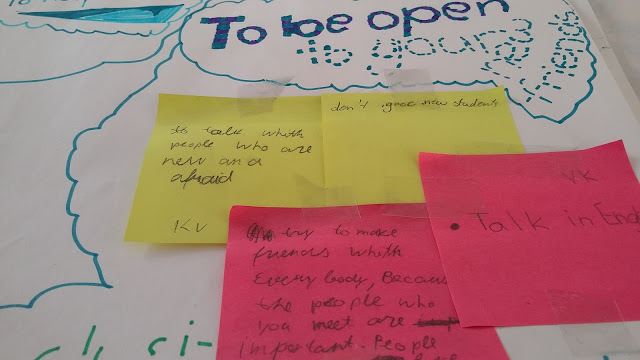 To be open
to your
new
friends
to talk whith
people who are
new and
afraid
KV
don't ignore new students
try to make
friends whith
Every body, Becaus
the people who
you meet are
important. People
VK
• Talk in Eng